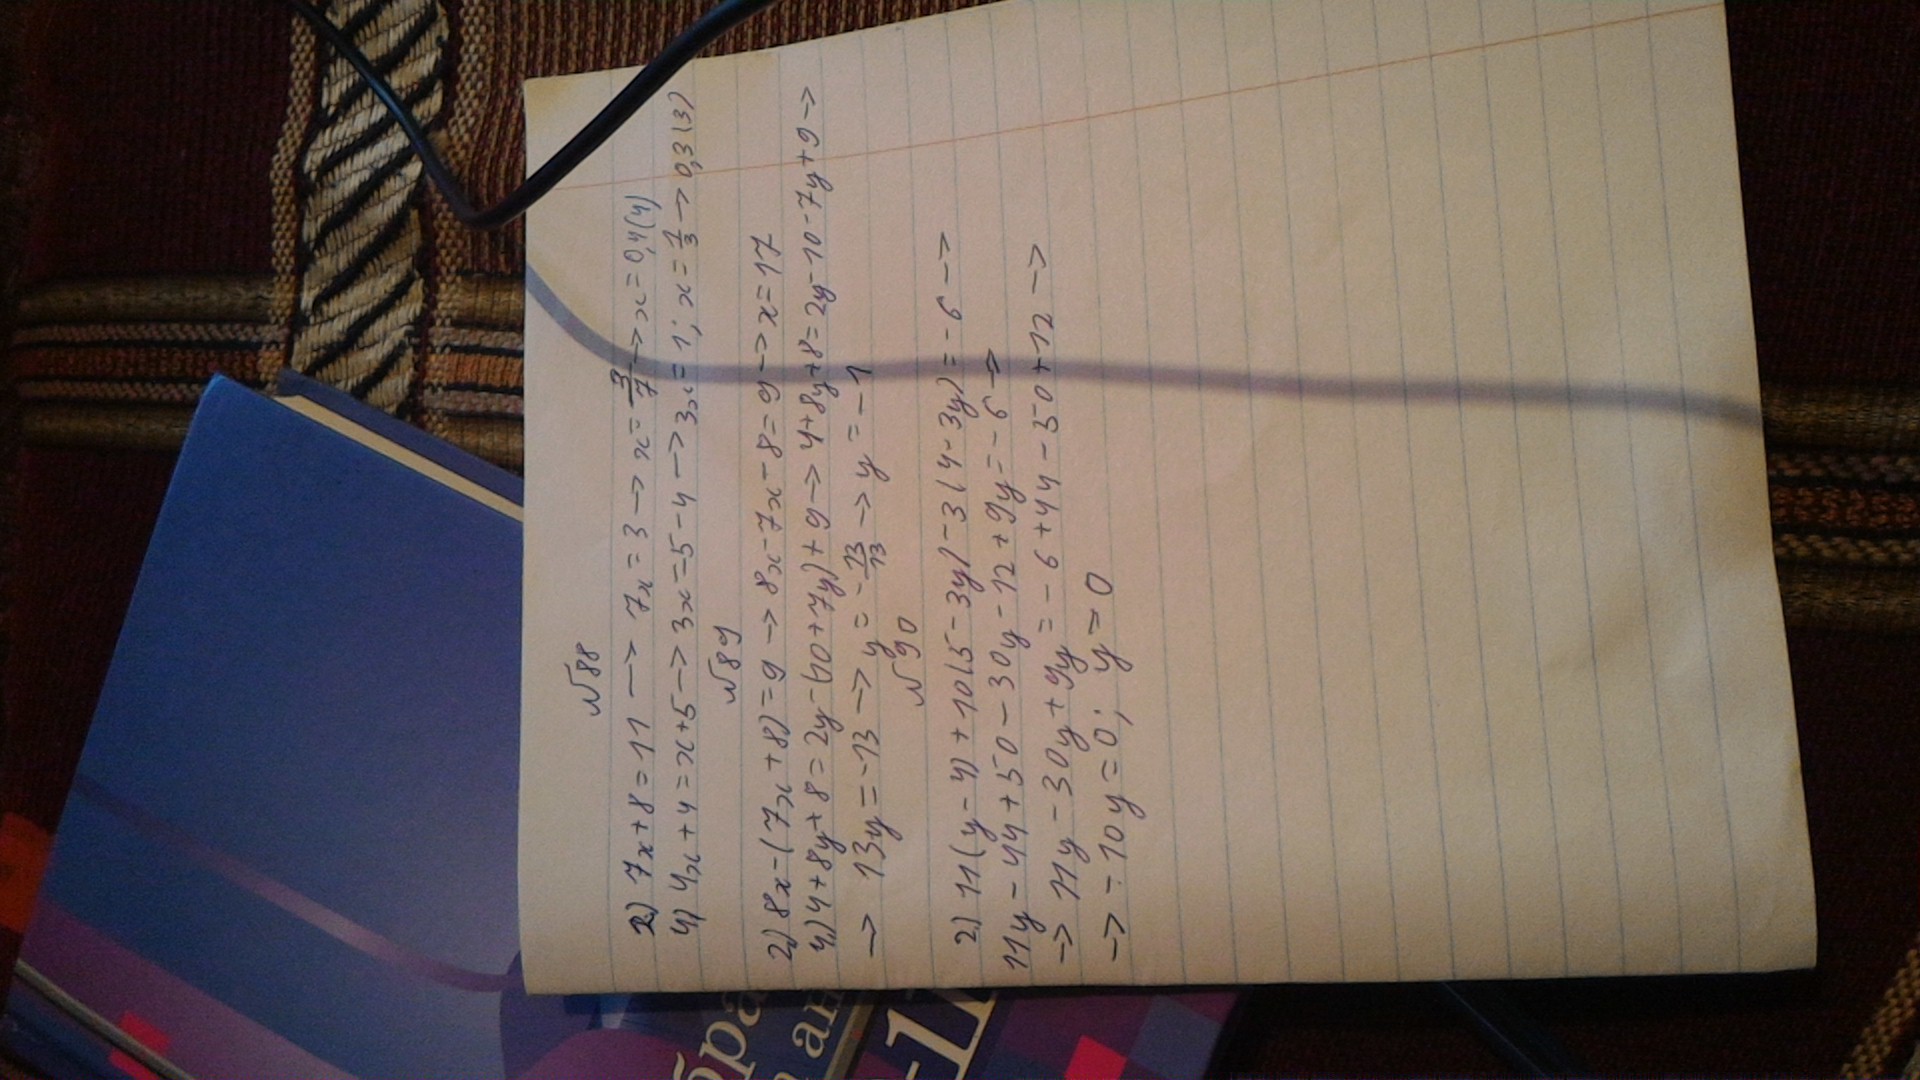 №88
2) 7x+8=11 —> 7x=3 —> x=3/7 —> x=0,4(4)
4) 4x+4=x+5 —> 3x=5-4 —> 3x=1; x=1/3 —> 0,3(3)
№89
2) 8x-(7x+8)=9 —> 8x-7x-8=9 —> x=17
4) 4+8y+8=2y-(10+7y)+9 —> 4+8y+8=2y-10-7y+9 —>
—> 13y=-13 —> y=-13/13 —> y=-1
№90
2) 11(y-4)+10(5-3y)-3(4-3y)=-6 —>
11y-44+50-30y-12+9y=-6 —>
—> 11y-30y+9y=-6+44-50+12 —>
—> -10y=0; y=0
-11